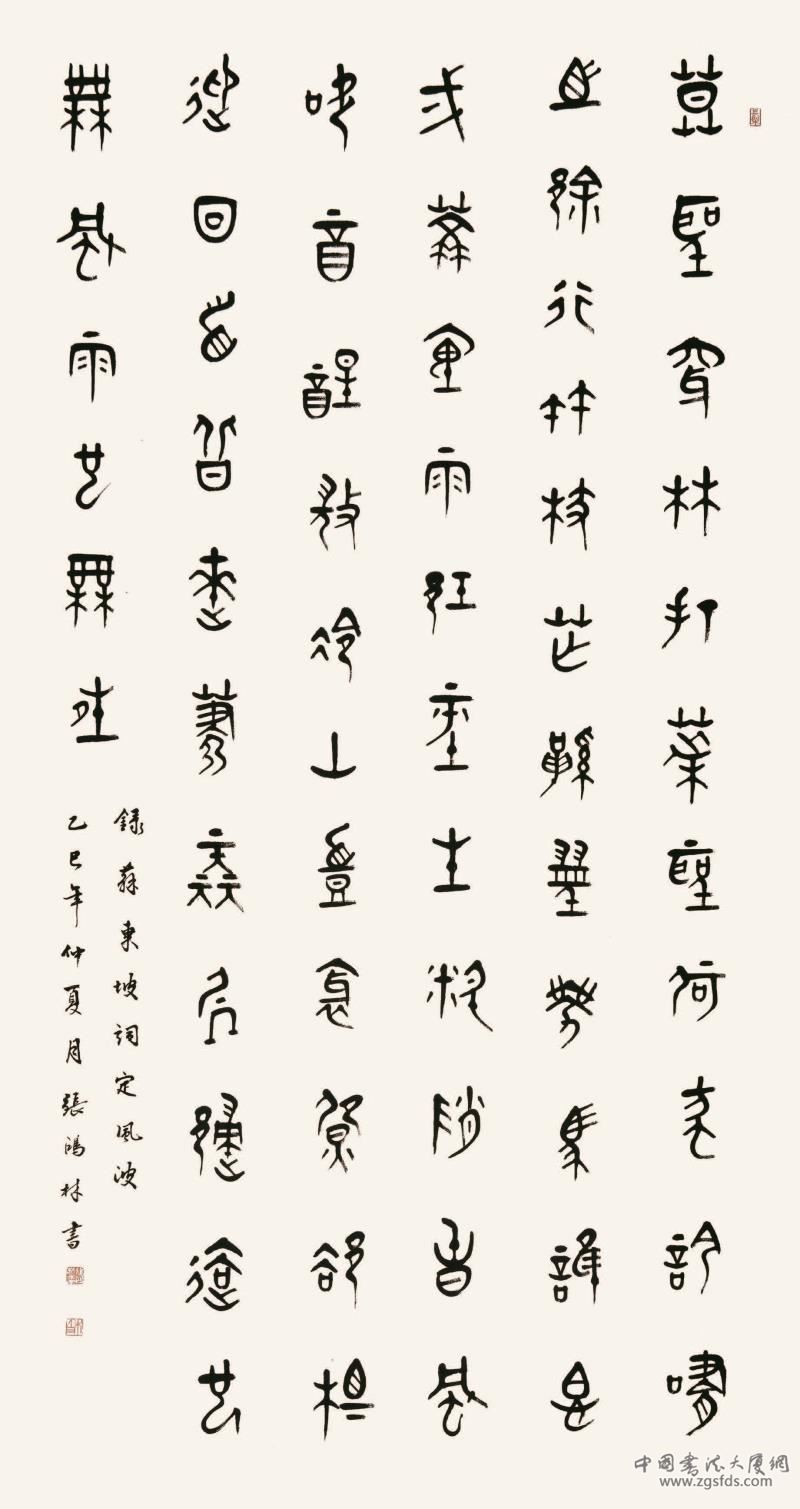 莫聽穿林打葉聲何妨吟嘯
且徐行竹杖芒鞋輕勝馬誰怕
一蓑煙雨任平生料峭春風
吹酒醒微冷山頭斜照卻相
迎回首向來蕭瑟處歸去也
無風雨也無晴
錄蘇東坡詞定風波
乙巳年仲夏月張鴻林書
中国书法大厦網
www.zgsfds.com